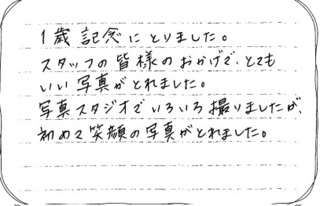 1歳記念にとりました。
スタッフの皆様のおかげで、とても
いい写真がとれました。
写真スタジオでいろいろ撮りましたが、
初めて笑顔の写真がとれました。